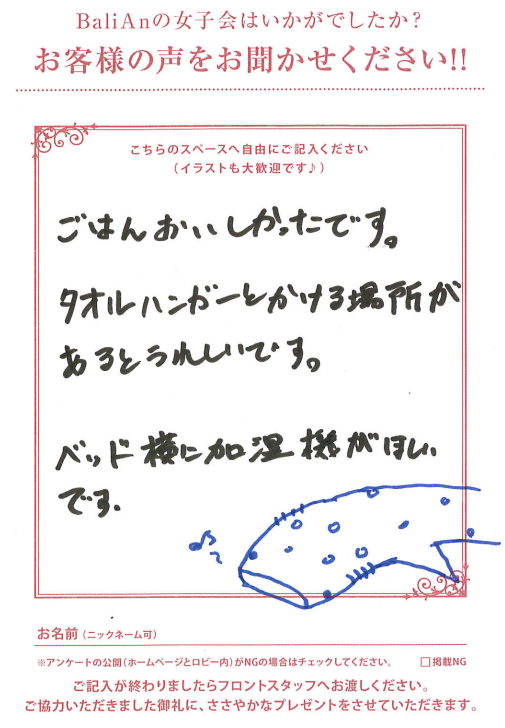 BaliAnの女子会はいかがでしたか？
お客様の声をお聞かせください!!
こちらのスペースへ自由にご記入ください
（イラストも大歓迎です♪）
ごはんおいしかったです。
タオルハンガーとかける場所が
あるとうれしいです。
ベッド横に加湿機がほしい
です.
お名前（ニックネーム可）
※アンケートの公開（ホームページとロビー内）がNGの場合はチェックしてください。 □掲載NG
ご記入が終わりましたらフロントスタッフへお渡しください。
ご協力いただきました御礼に、ささやかなプレゼントをさせていただきます。